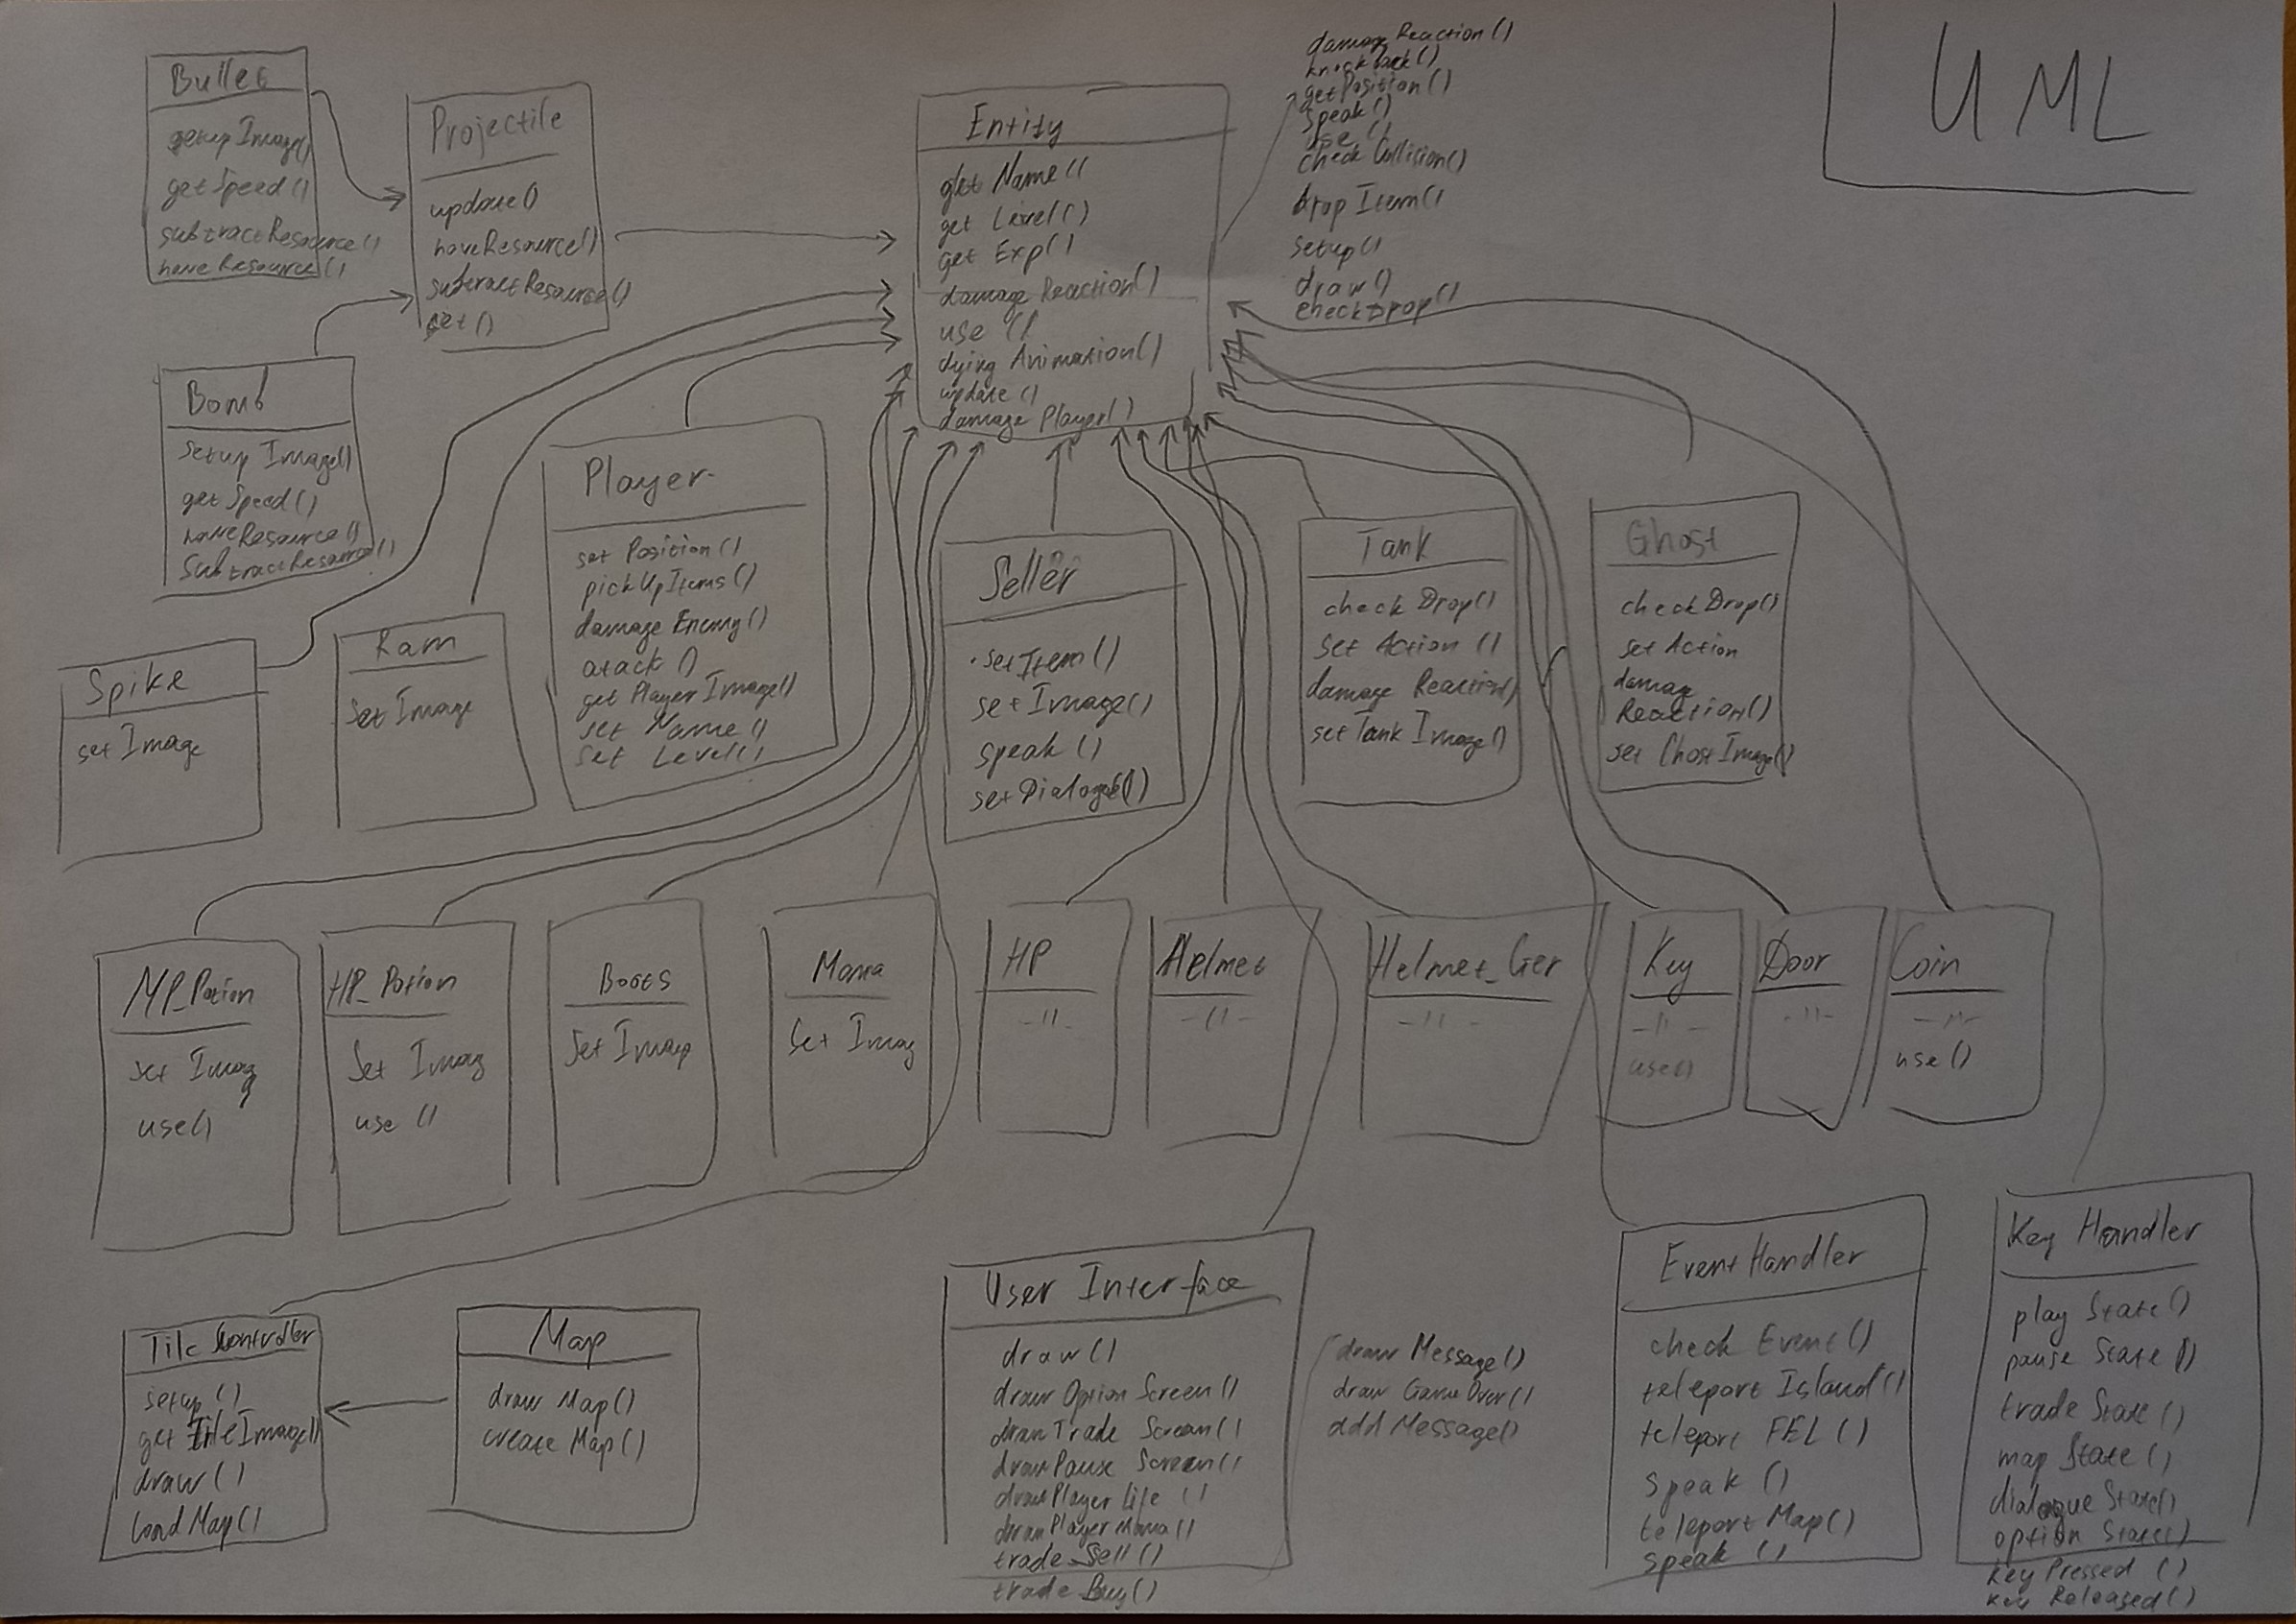 UML
Bullet
setup Image()
getSpeed()
subtractResource()
haveResource()
Projectile
update()
haveResource()
subtractResource()
set()
Entity
get Name()
get Level()
get Exp()
damage Reaction()
use ()
dying Animation()
update ()
damage Player()
damage Reaction()
knockback()
getPosition()
speak()
use ()
check Collision()
drop Item()
setup()
draw()
checkDrop()
Bomb
setup Image()
get Speed()
haveResource()
SubtractResource()
Player
set Position()
pickUpItems()
damage Enemy()
atack ()
get Player Image()
set Name()
set Level()
Seller
setItem()
setImage()
speak ()
setDialogue()
Tank
check Drop()
set Action ()
damage Reaction()
set Tank Image()
Ghost
check Drop()
set Action
damage
Reaction()
set Ghost Image()
Spike
set Image
Ram
Set Image
MP_Potion
set Imag
use()
HP_Potion
Set Imag
use ()
Boots
Set Imag
Mana
Set Imag
HP
-||-
Helmet
-||-
Helmet_Ger
-||-
Key
-||-
use()
Door
-||-
Coin
-||-
use()
Tile Controller
setup ()
get TileImage()
draw ()
loadMap()
Map
draw Map()
create Map()
User Interface
draw()
draw Option Screen()
draw Trade Screen()
draw Pause Screen()
draw Player Life ()
draw Player Mana()
trade_Sell ()
trade Buy()
draw Message()
draw Game Over()
add Message()
Event Handler
check Event()
teleport Island()
teleport FEL ()
speak ()
teleport Map()
speak ()
Key Handler
play State()
pause State()
trade State ()
map State ()
dialogue State()
option State()
key Pressed ()
key Released()